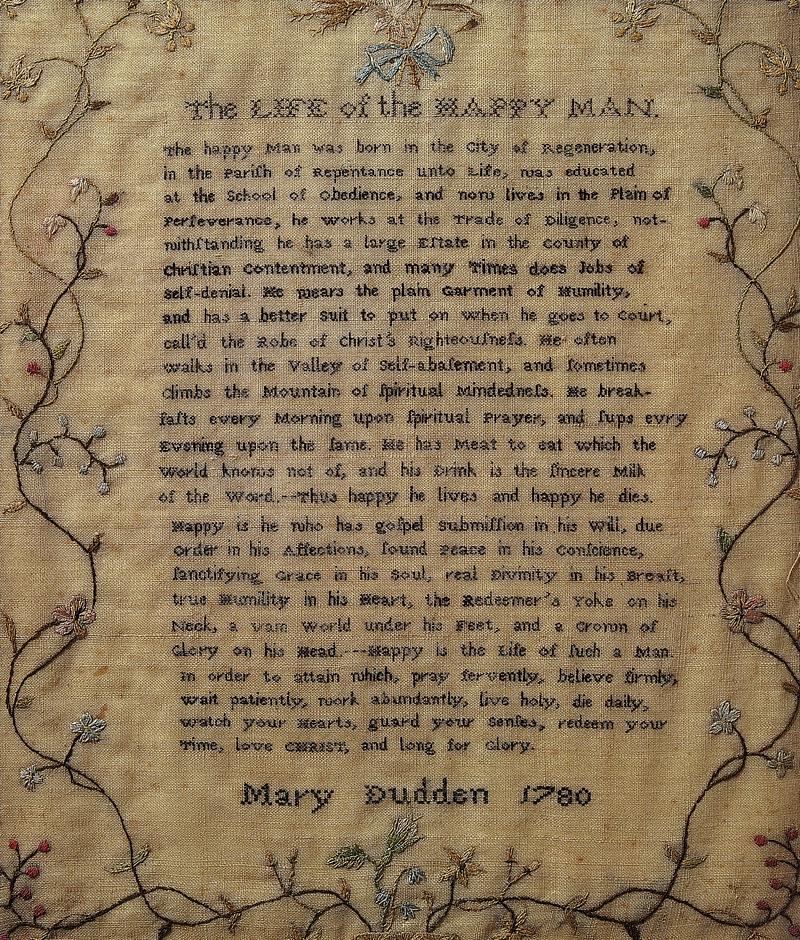 The LIFE of the HAPPY MAN.
The happy Man was born in the City of Regeneration,
in the Pariſh of Repentance unto Life, was educated
at the School of Obedience, and now lives in the Plain of
Perſeverance, he works at the Trade of Diligence, not-
withſtanding he has a large Eſtate in the County of
Chriſtian Contentment, and many Times does Jobs of
Self-denial. He wears the plain Garment of Humility,
and has a better Suit to put on when he goes to Court,
call'd the Robe of Christ's Righteouſneſs. He often
walks in the Valley of Self-abaſement, and ſometimes
Climbs the Mountain of ſpiritual Mindedneſs. He break-
faſts every Morning upon ſpiritual Prayer, and ſups evry
Evening upon the ſame. He has Meat to eat which the
World knows not of, and his Drink is the ſincere Milk
of the Word.--Thus happy he lives and happy he dies.
Happy is he who has goſpel Submiſſion in his Will, due
Order in his Affections, ſound Peace in his Conſcience,
ſanctifying Grace in his Soul, real Divinity in his Breaſt,
true Humility in his Heart, the Redeemer's Yoke on his
Neck, a vain World under his Feet, and a Crown of
Glory on his Head.---Happy is the Life of ſuch a Man.
In order to attain which, pray fervently, believe firmly,
wait patiently, work abundantly, live holy, die daily,
watch your Hearts, guard your Senſes, redeem your
Time, love CHRIST, and long for Glory.
Mary Dudden 1780